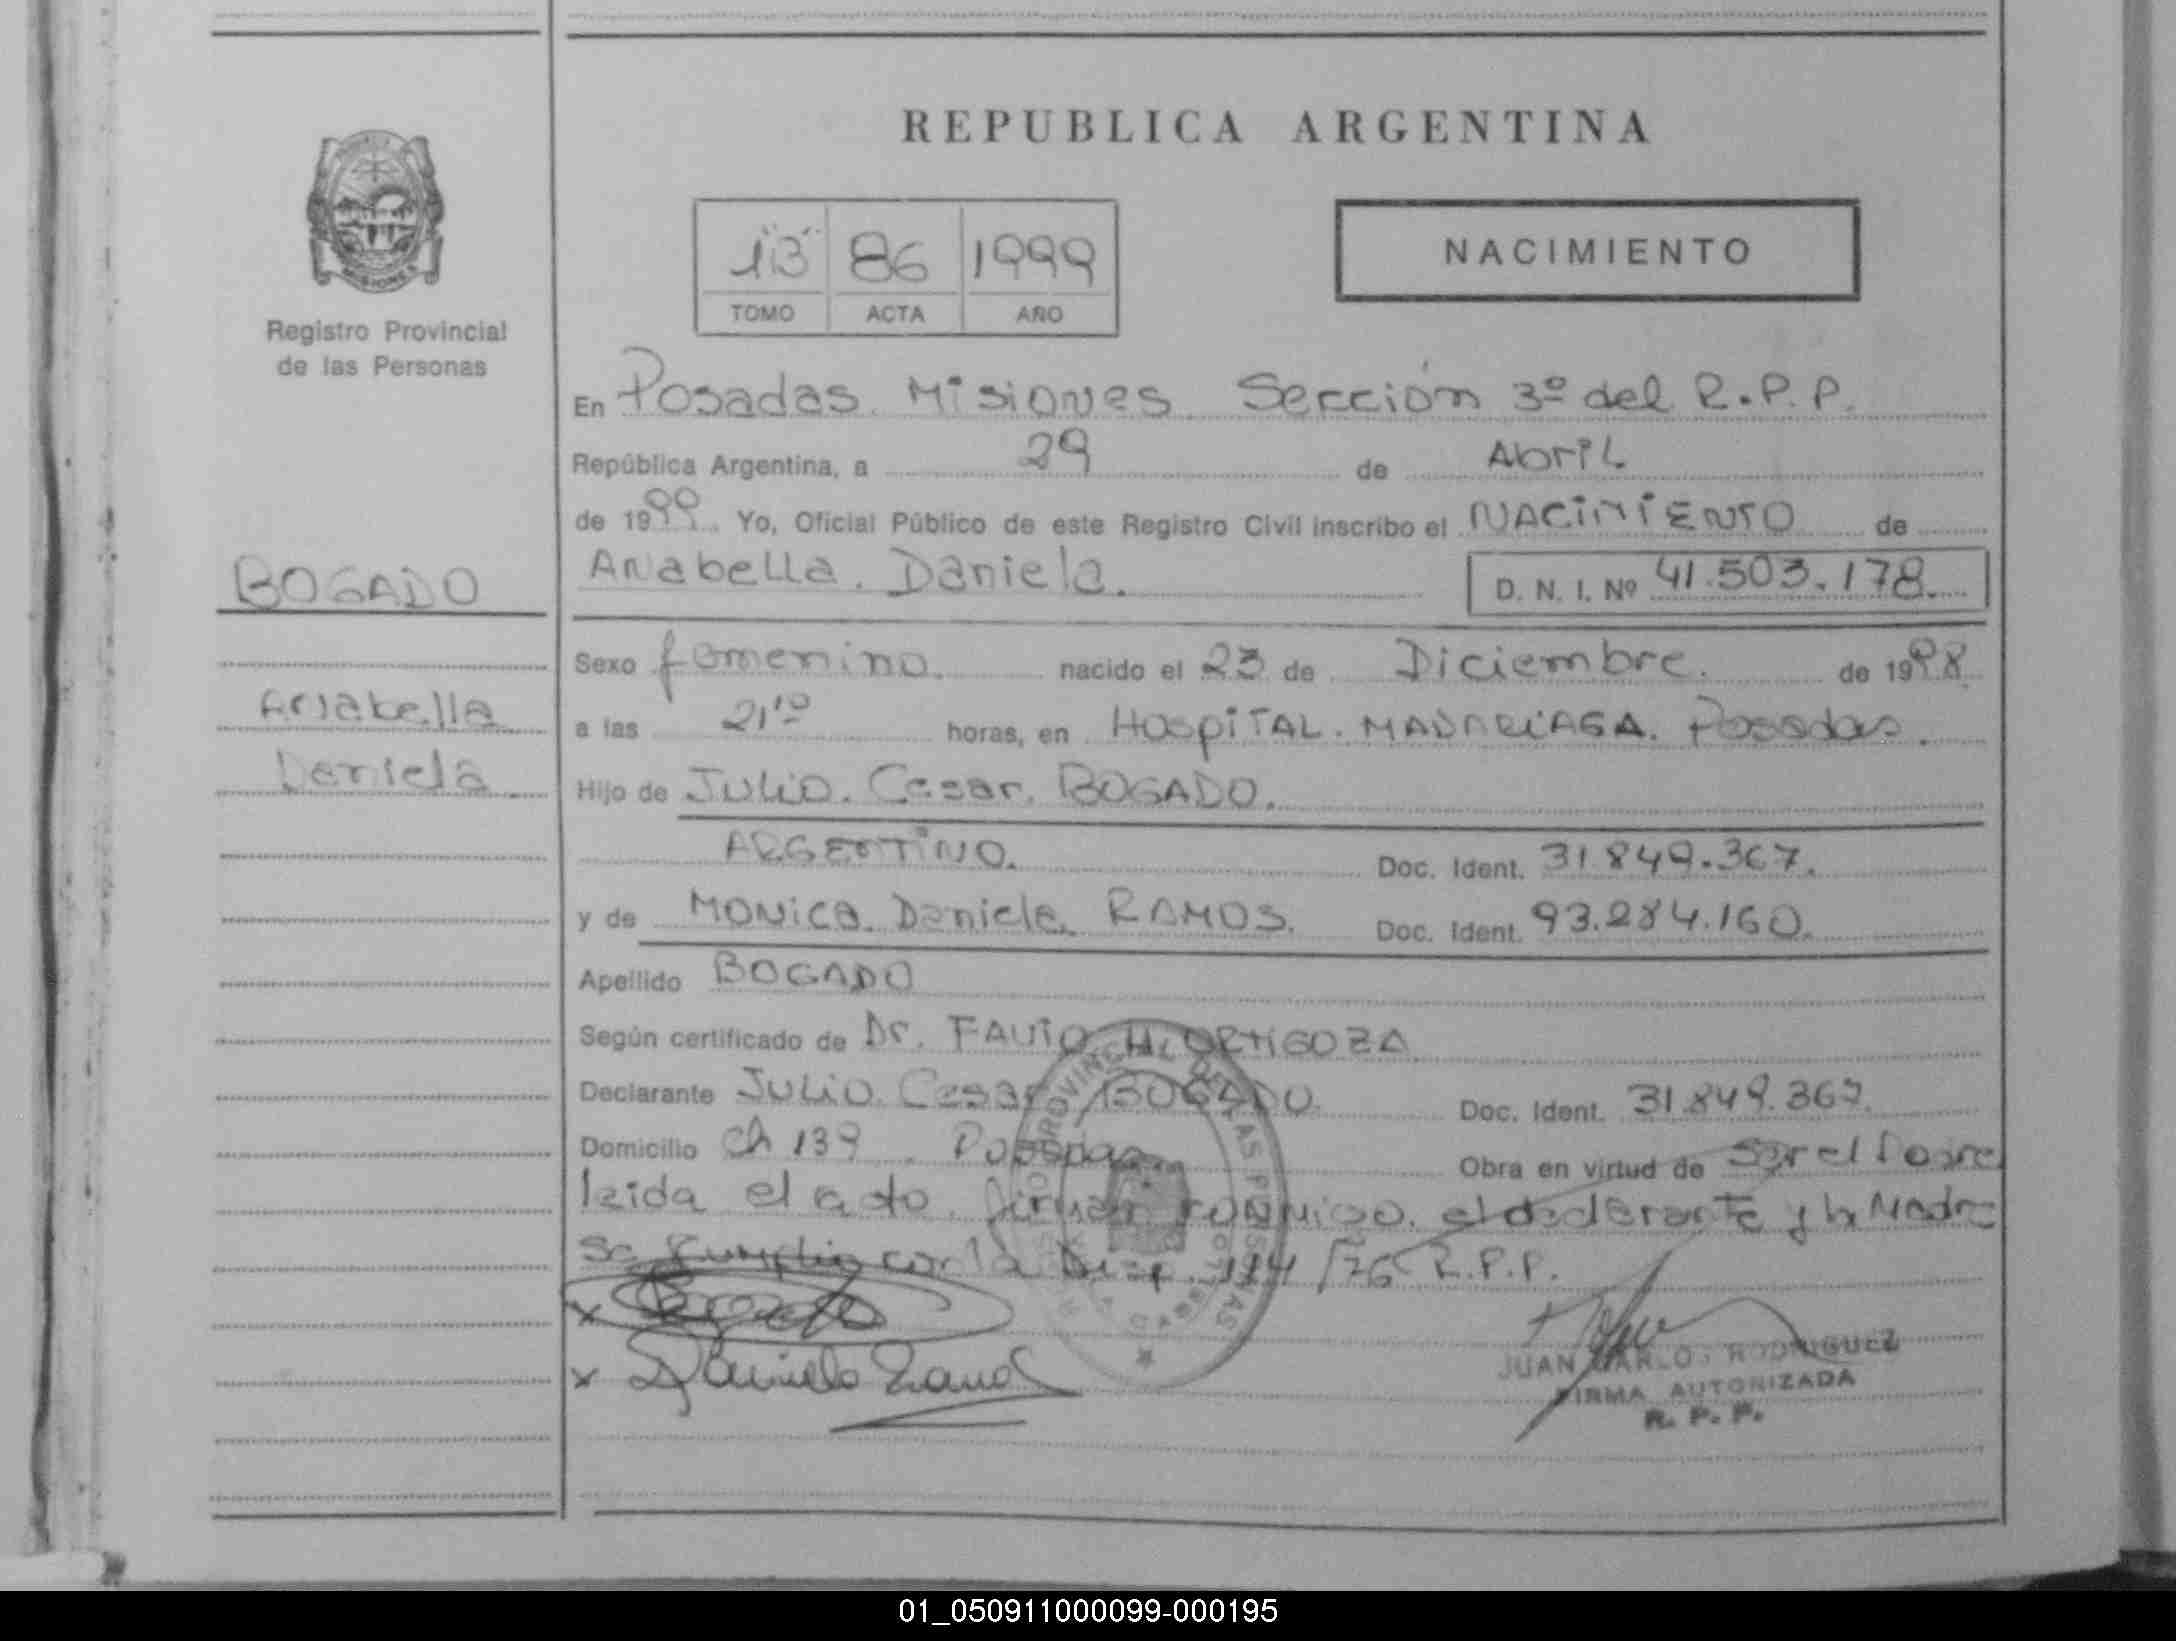 REPUBLICA ARGENTINA
"13" 86 1999
TOMO ACTA AÑO
NACIMIENTO
MISIONES
Registro Provincial
de las Personas
BOGADO
Anabella
Daniela
En Posadas. Misiones. Sección 3º del R.P.P.
República Argentina, a 29 de Abril
de 1999. Yo, Oficial Público de este Registro Civil inscribo el NACIMIENTO de
Anabella. Daniela. D. N. I. Nº 41.503.178.
Sexo femenino. nacido el 23 de Diciembre. de 1998
a las 21,10 horas, en HospiTAL. MADARIAGA. Posadas.
Hijo de Julio. Cesar. BOGADO.
ARGENTINO. Doc. Ident. 31.849.367.
y de MONICA. Daniela. RAMOS. Doc. Ident. 93.284.160.
Apellido BOGADO
Según certificado de Dr. FAVIO H. ORTIGOZA
Declarante Julio. Cesar BOGADO. Doc. Ident. 31.849.367.
Domicilio Ch 139. Posadas Obra en virtud de Ser el Padre
leida el acto. firman conmigo. el declarante y la Madre
Se cumplio con la Disp. 114/76 R.P.P.
x
x Daniela
JUAN CARLOS RODRIGUEZ
FIRMA AUTORIZADA
R. P. P.
01_050911000099-000195